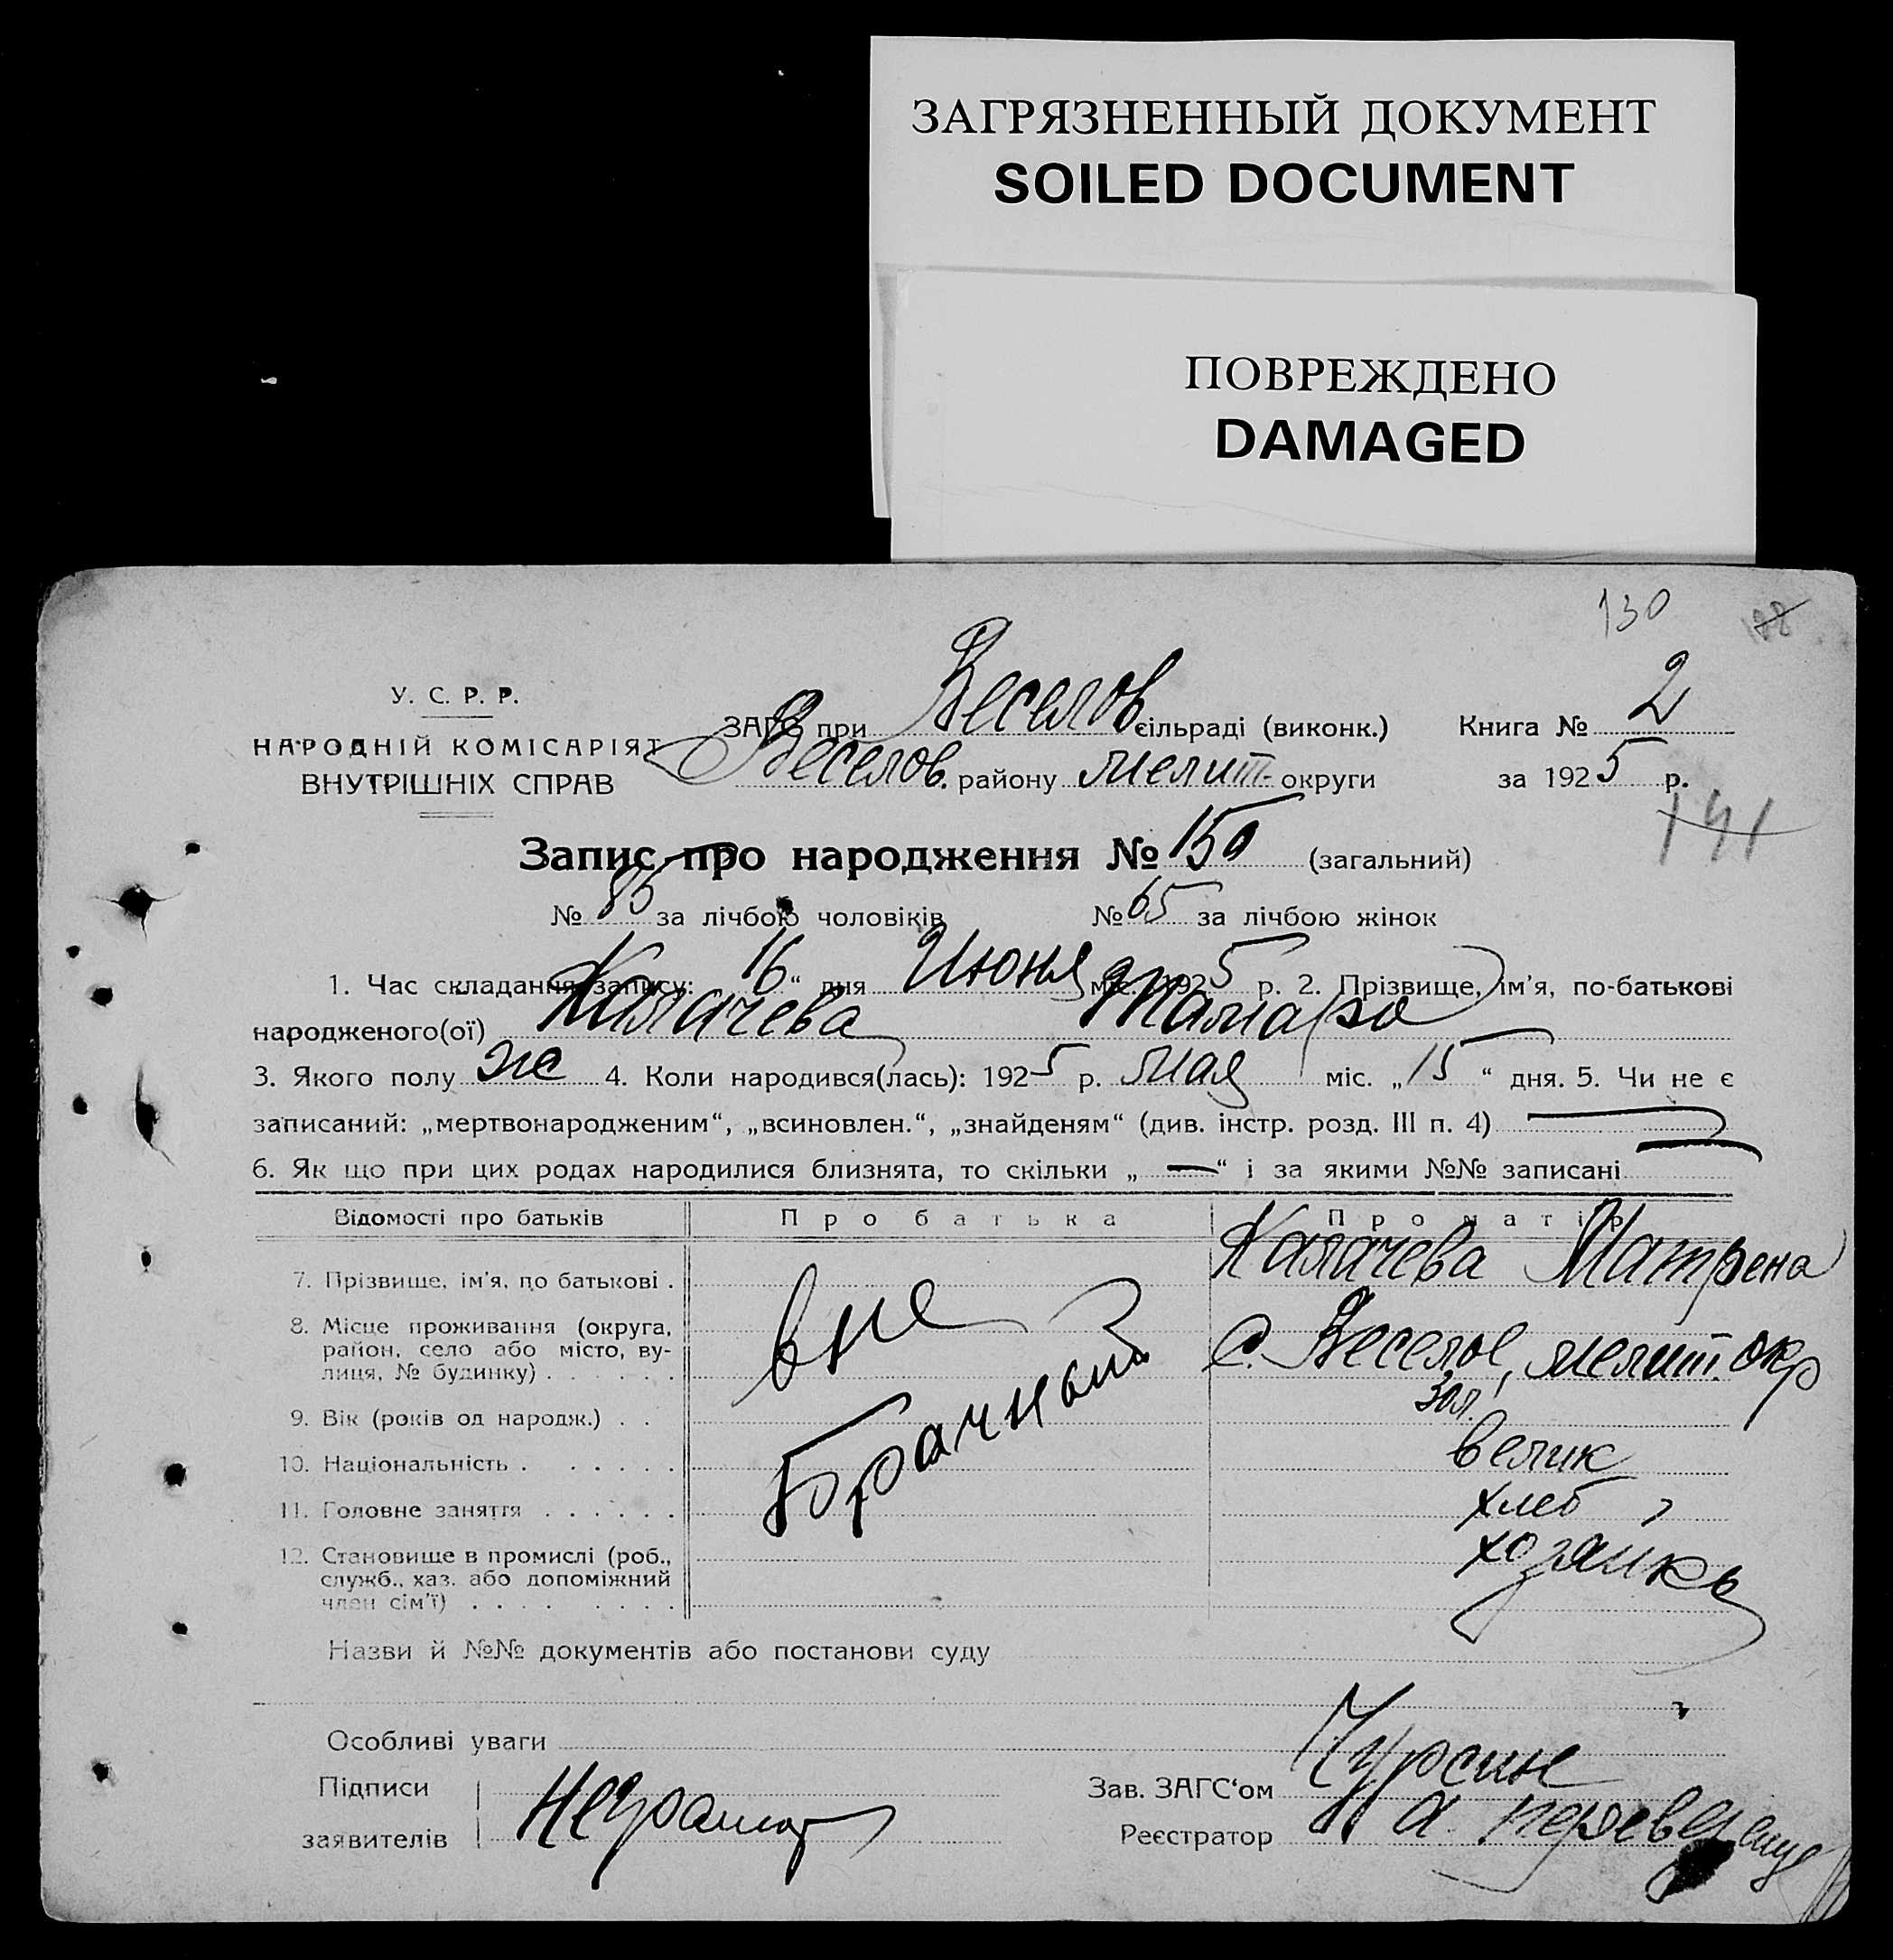 ЗАГРЯЗНЕННЫЙ ДОКУМЕНТ
SOILED DOCUMENT
ПОВРЕЖДЕНО
DAMAGED
130
У. С. Р. Р.
НАРОДНІЙ КОМІСАРІЯТ
ВНУТРІШНІХ СПРАВ
ЗАГС при Веселов сільраді (виконк.) Книга № 2
Веселов. району Мелит. округи за 1925 р.
141
Запис про народження № 150 (загальний)
№ 85 за лічбою чоловіків № 65 за лічбою жінок
1. Час складання запису: 16 “ дня Июня міс. 1925 р. 2. Прізвище, ім’я, по-батькові
народженого(ої) Калачева Тамара
3. Якого полу же 4. Коли народився(лась): 1925 р. мая міс. „15“ дня. 5. Чи не є
записаний: „мертвонародженим“, „всиновлен.“, „знайденям“ (див. інстр. розд. III п. 4) —
6. Як що при цих родах народилися близнята, то скільки „ — “ і за якими №№ записані —
Відомості про батьків Про батька Про матір
7. Прізвище, ім’я, по батькові . Калачева Матрена
8. Місце проживання (округа, район, село або місто, вулиця, № будинку) . . . . . . с. Веселое, мелит. окр
9. Вік (років од народж.) . . 30л.
10. Національність . . . . . . велик
11. Головне заняття . . . . . . хлеб
12. Становище в промислі (роб., служб., хаз. або допоміжний член сім’ї) . . . . . . . . хозяйка
вне
брачный
Назви й №№ документів або постанови суду
Особливі уваги
Підписи
заявителів Неграмот
Зав. ЗАГС‘ом Чурсин
Реєстратор